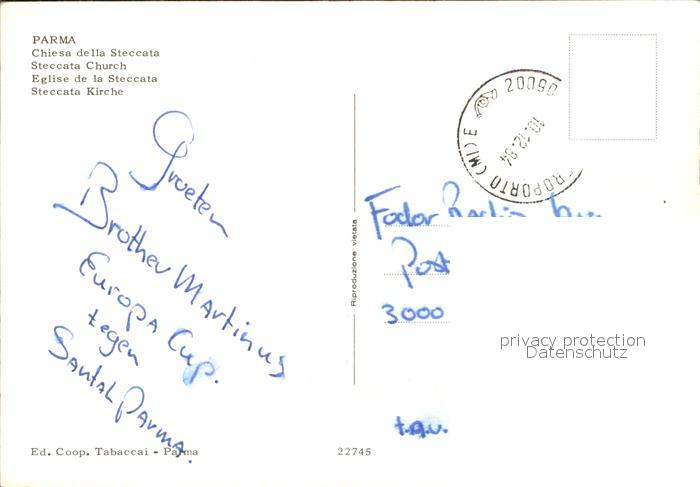 PARMA
Chiesa della Steccata
Steccata Church
Eglise de la Steccata
Steccata Kirche
Groeten
Brother Martinus
Europa Cup.
tegen
Santal Parma.
Ed. Coop. Tabaccai - Parma
22745
Riproduzione vietata
20090
10.12.84
ROPORTO (MI) E
Fodor
Post
3000
t.g.v.
privacy protection
Datenschutz